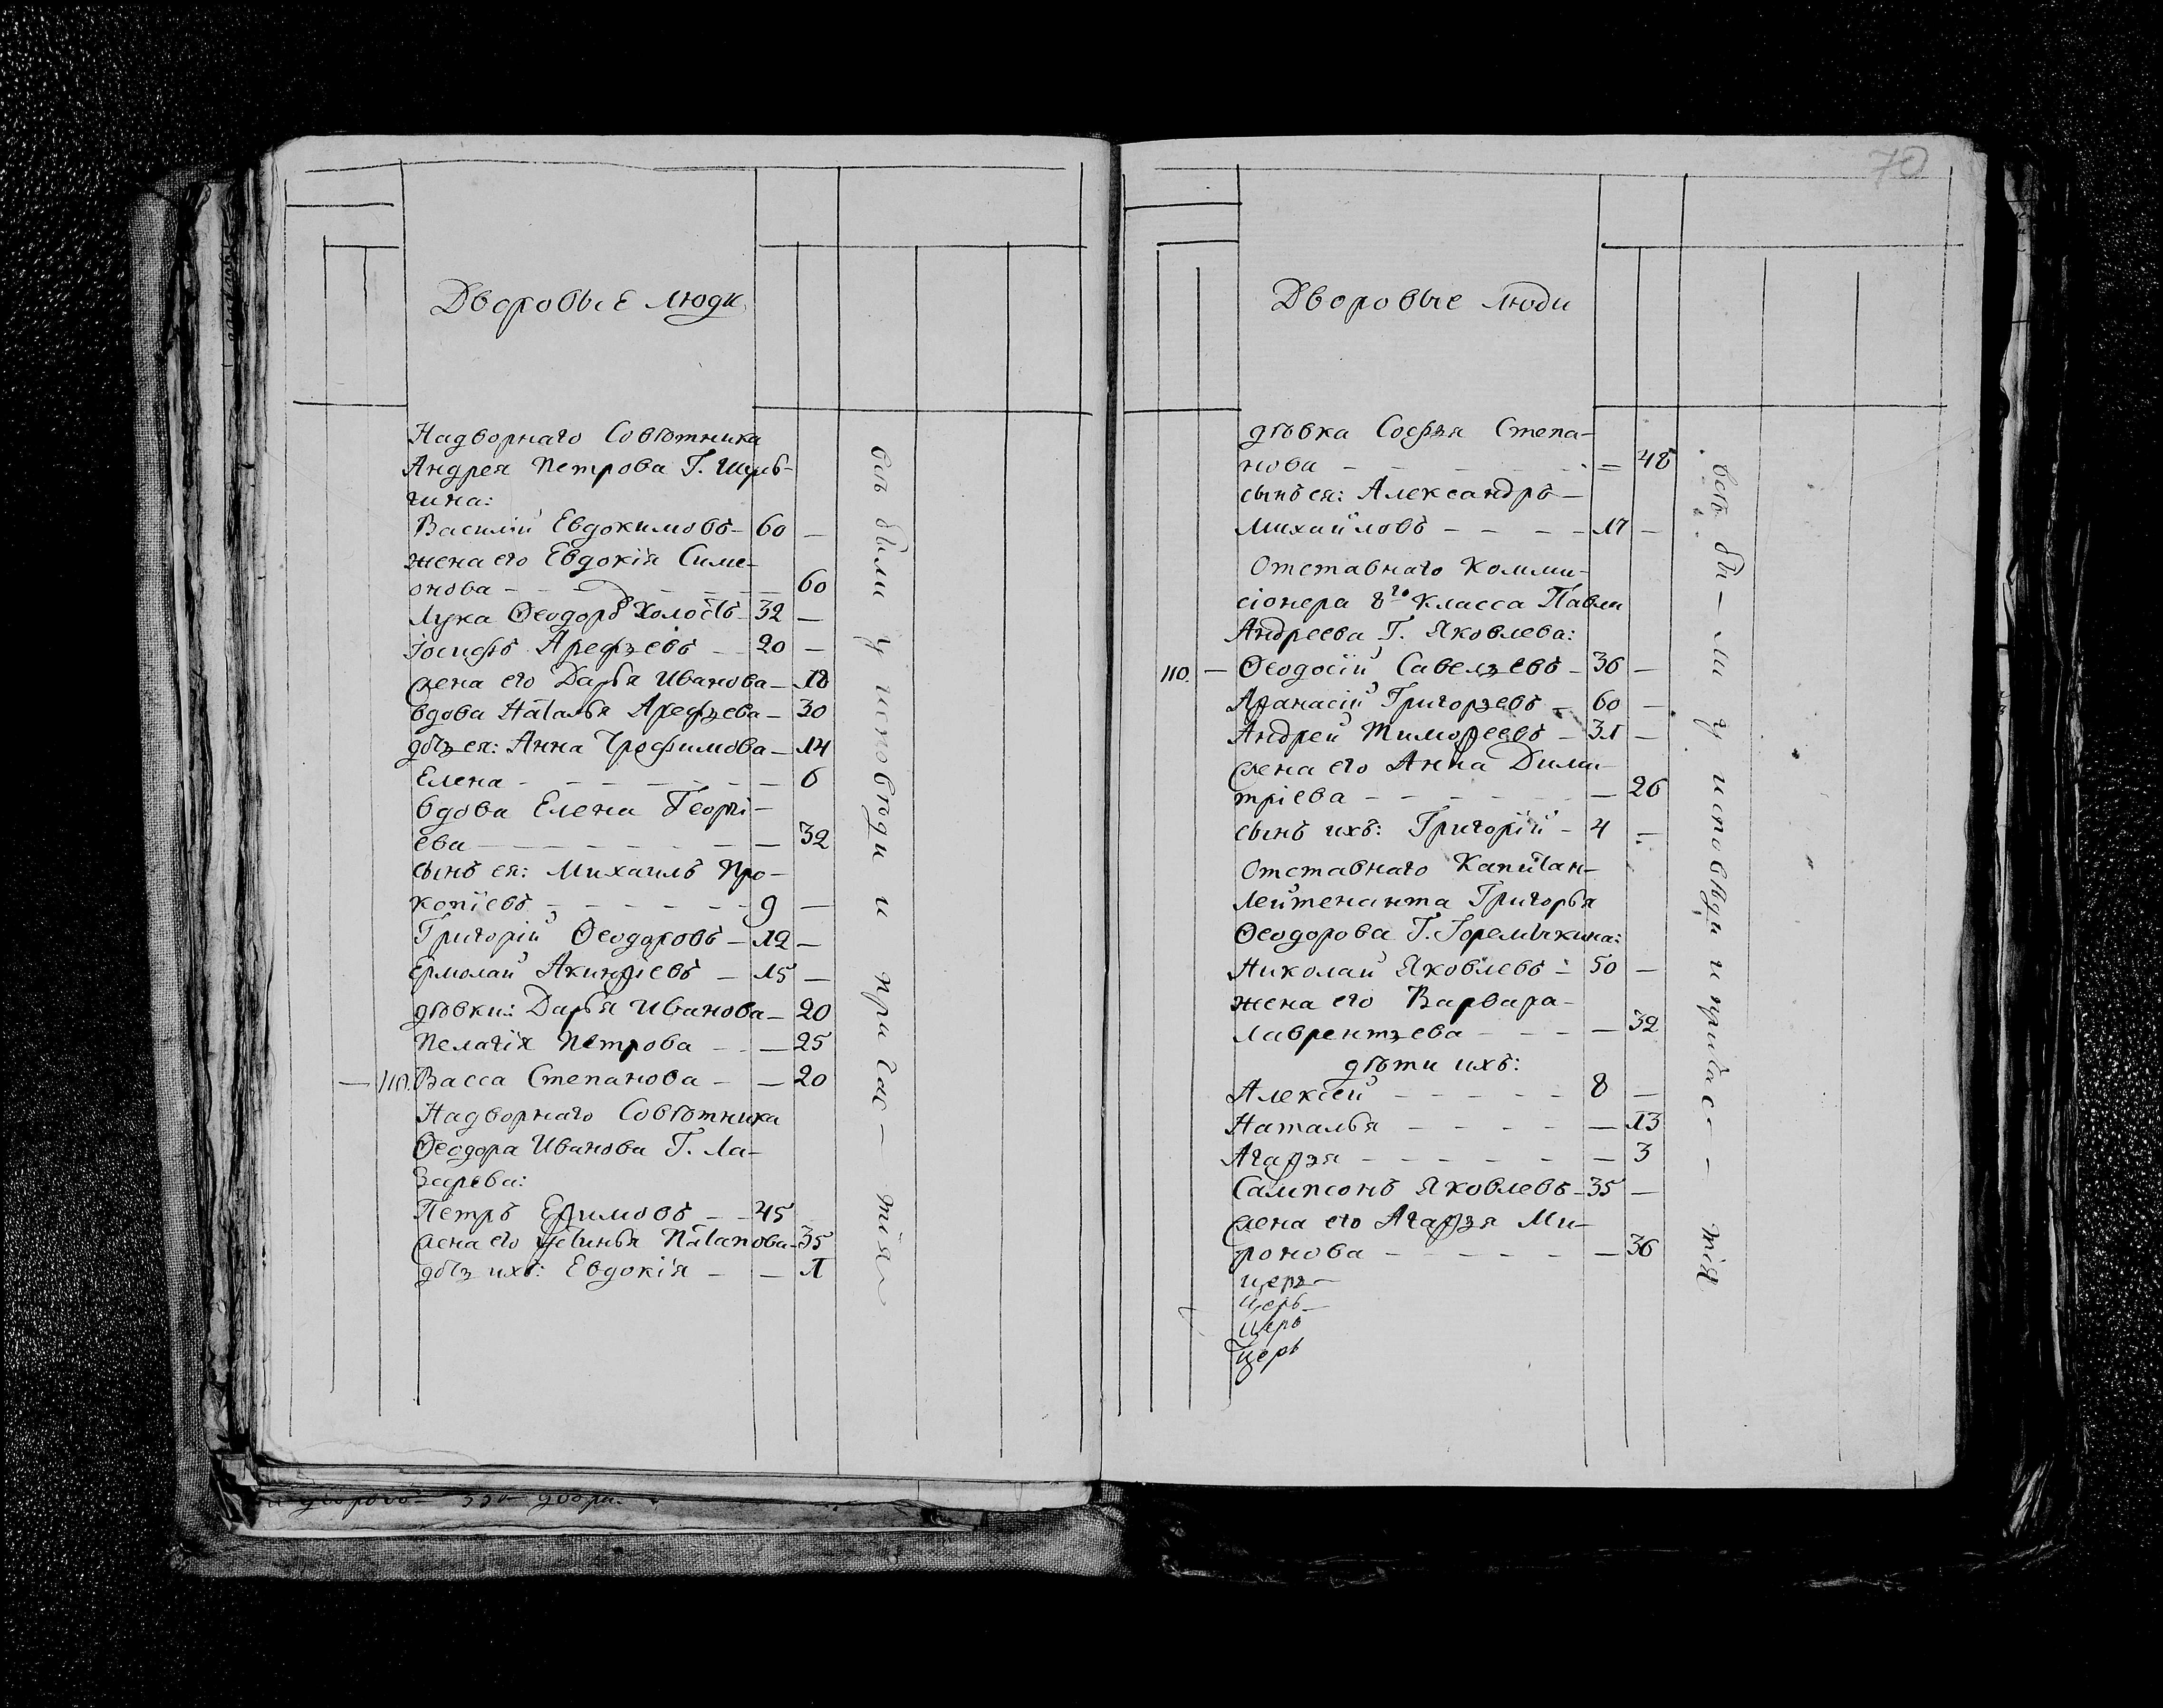 Дворовые люди
Надворнаго Совѣтника
Андрея Петрова Г. Шуль-
гина:
Василій Евдокимовъ – 60 –
жена его Евдокія Симе-
онова – – – – – – 60
Лука Ѳеодоръ холостъ – 32 –
Іосифъ Арефьевъ – 20 –
жена его Дарья Иванова – 18
вдова Наталья Арефьева – 30
дѣт ея: Анна Трофимова – 14
Елена – – – – – – 6
вдова Елена Георгі-
ева – – – – – – 32
сынъ ея: Михаилъ Про-
копіевъ – – – – – – 9 –
Григорій Ѳеодоровъ – 12 –
Ермолай Акинѳіевъ – 15 –
дѣвки: Дарья Иванова – 20
Пелагія Петрова – – 25
– 110. Васса Степанова – – 20
Надворнаго Совѣтника
Ѳеодора Иванова Г. Ла-
зарева:
Петръ Еѳимовъ – – 45
жена его Устинья Патапова – 35
дѣт ихъ: Евдокія – – 1
всѣ были у исповѣди и причас – тія
70
Дворовые люди
дѣвка Софья Степа-
нова – – – – – – = 48
сынъ ея: Александръ –
Михайловъ – – – – 17 –
Отставнаго Комми-
сіонера 8го класса Павла
Андреева Г. Яковлева:
110. – Ѳеодосій Савельевъ – 36 –
Аѳанасій Григорьевъ – 60 –
Андрей Тимоѳеевъ – 31 –
жена его Анна Дими-
тріева – – – – – – 26
сынъ ихъ: Григорій – 4 –
Отставнаго Капитан-
Лейтенанта Григорья
Ѳеодорова Г. Горемыкина:
Николай Яковлевъ – 50 –
жена его Варвара –
Лаврентьева – – – – 32
дѣти ихъ:
Алексѣй – – – – – 8 –
Наталья – – – – – 13
Агаѳья – – – – – – 3
Сампсонъ Яковлевъ – 35 –
жена его Агаѳья Ми-
ронова – – – – – – 36
церь –
церь –
церь
церь
всѣ бы – ли у исповѣди и причас – тія